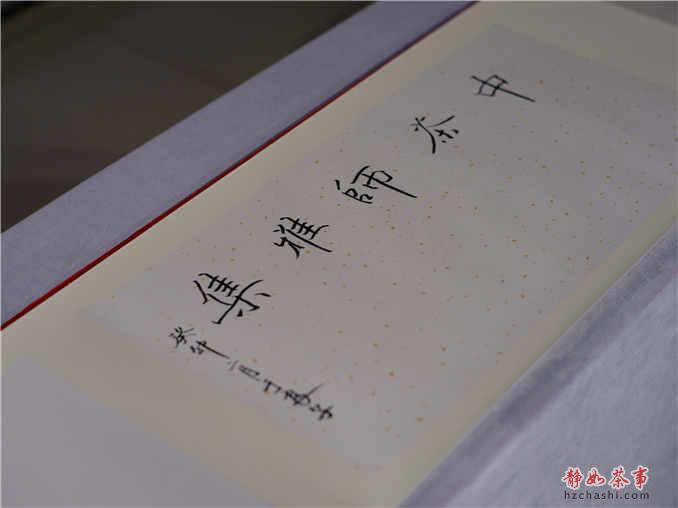 中茶師雅集
癸卯二月丁敏
静如茶事
hzchashi.com